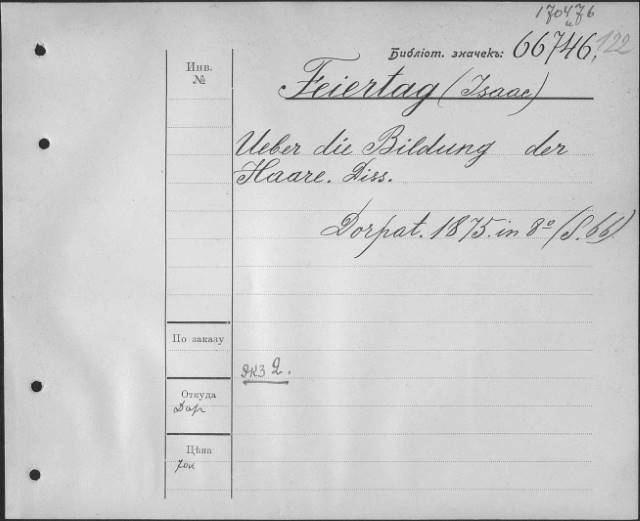 170476
и
Библіот. значекъ: 66746, 122
Инв.
№
Feiertag (Isaac)
Ueber die Bildung der
Haare. Diss.
Dorpat. 1875. in 8º (S. 66)
По заказу
экз 2.
Откуда
Дар
Цѣна